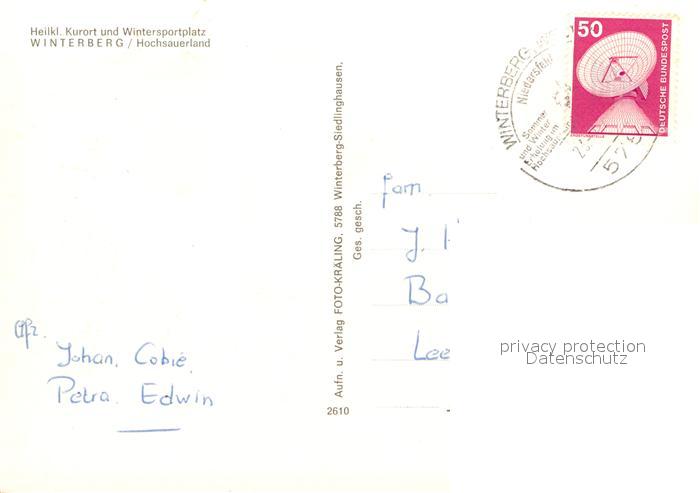 Heilkl. Kurort und Wintersportplatz
WINTERBERG / Hochsauerland
Afz.
Johan, Cobie,
Petra. Edwin
2610
Aufn. u. Verlag FOTO-KRÄLING, 5788 Winterberg-Siedlinghausen,
Ges. gesch.
fam
J.
Ba
Lee
WINTERBERG
Niedersfeld
Sommer
und Winter
Erholung im
578
50
DEUTSCHE BUNDESPOST
ERDEFUNKSTELLE
privacy protection
Datenschutz